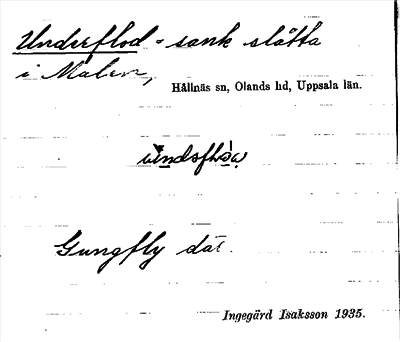 Underflod - sank slåtta
i Malen,
Hållnäs sn, Olands hd, Uppsala län.
Gungfly där.
Ingegärd Isaksson 1935.